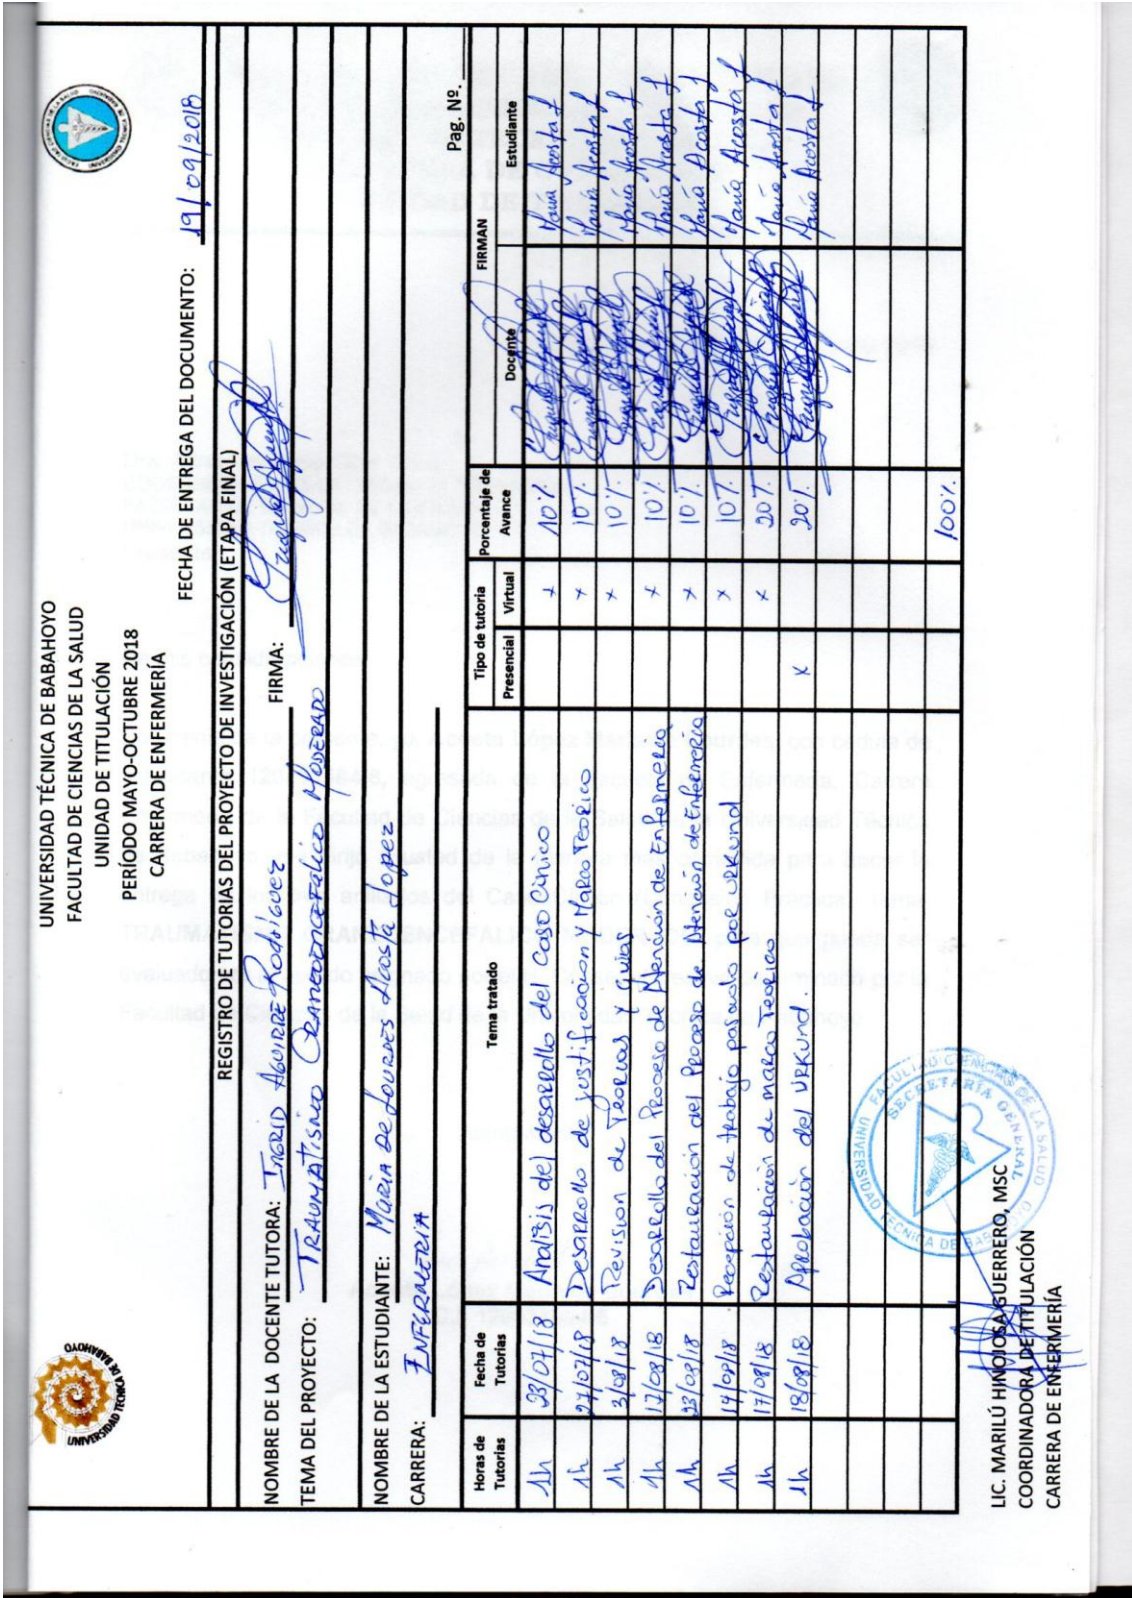 UNIVERSIDAD TÉCNICA DE BABAHOYO
FACULTAD DE CIENCIAS DE LA SALUD
UNIDAD DE TITULACIÓN
PERIODO MAYO-OCTUBRE 2018
CARRERA DE ENFERMERÍA
UNIVERSIDAD TECNICA DE BABAHOYO
FECHA DE ENTREGA DEL DOCUMENTO: 19/09/2018
REGISTRO DE TUTORIAS DEL PROYECTO DE INVESTIGACIÓN (ETAPA FINAL)
NOMBRE DE LA DOCENTE TUTORA: INGRID AGUIRRE RODRÍGUEZ FIRMA:
TEMA DEL PROYECTO: TRAUMATISMO CRANEOENCEFALICO MODERADO
NOMBRE DE LA ESTUDIANTE: MARIA DE LOURDES ACOSTA LOPEZ
CARRERA: ENFERMERIA
Pag. Nº.
Horas de Tutorias Fecha de Tutorias Tema tratado Tipo de tutoria Presencial Virtual Porcentaje de Avance FIRMAN Docente Estudiante
1h 23/07/18 Analisis del desarrollo del Caso Clinico x 10% María Acosta L
1h 27/07/18 Desarrollo de justificacion y Marco Teorico x 10% María Acosta L
1h 3/08/18 Revision de Teorias y Guias x 10% María Acosta L
1h 17/08/18 Desarrollo del Proceso de Atención de Enfermería x 10% María Acosta L
1h 23/08/18 Restauración del Proceso de Atención de Enfermeria x 10% María Acosta L
1h 14/09/18 Recepción de trabajo pasado por URKUND x 10% María Acosta L
1h 17/09/18 Restauración de marco Teorico x 20% María Acosta L
1h 18/09/18 Aprobación del URKUND. x 20% María Acosta L
100%
FACULTAD CIENCIAS DE LA SALUD
SECRETARÍA GENERAL
UNIVERSIDAD TÉCNICA DE BABAHOYO
LIC. MARILÚ HINOJOSA GUERRERO, MSC
COORDINADORA DE TITULACIÓN
CARRERA DE ENFERMERÍA